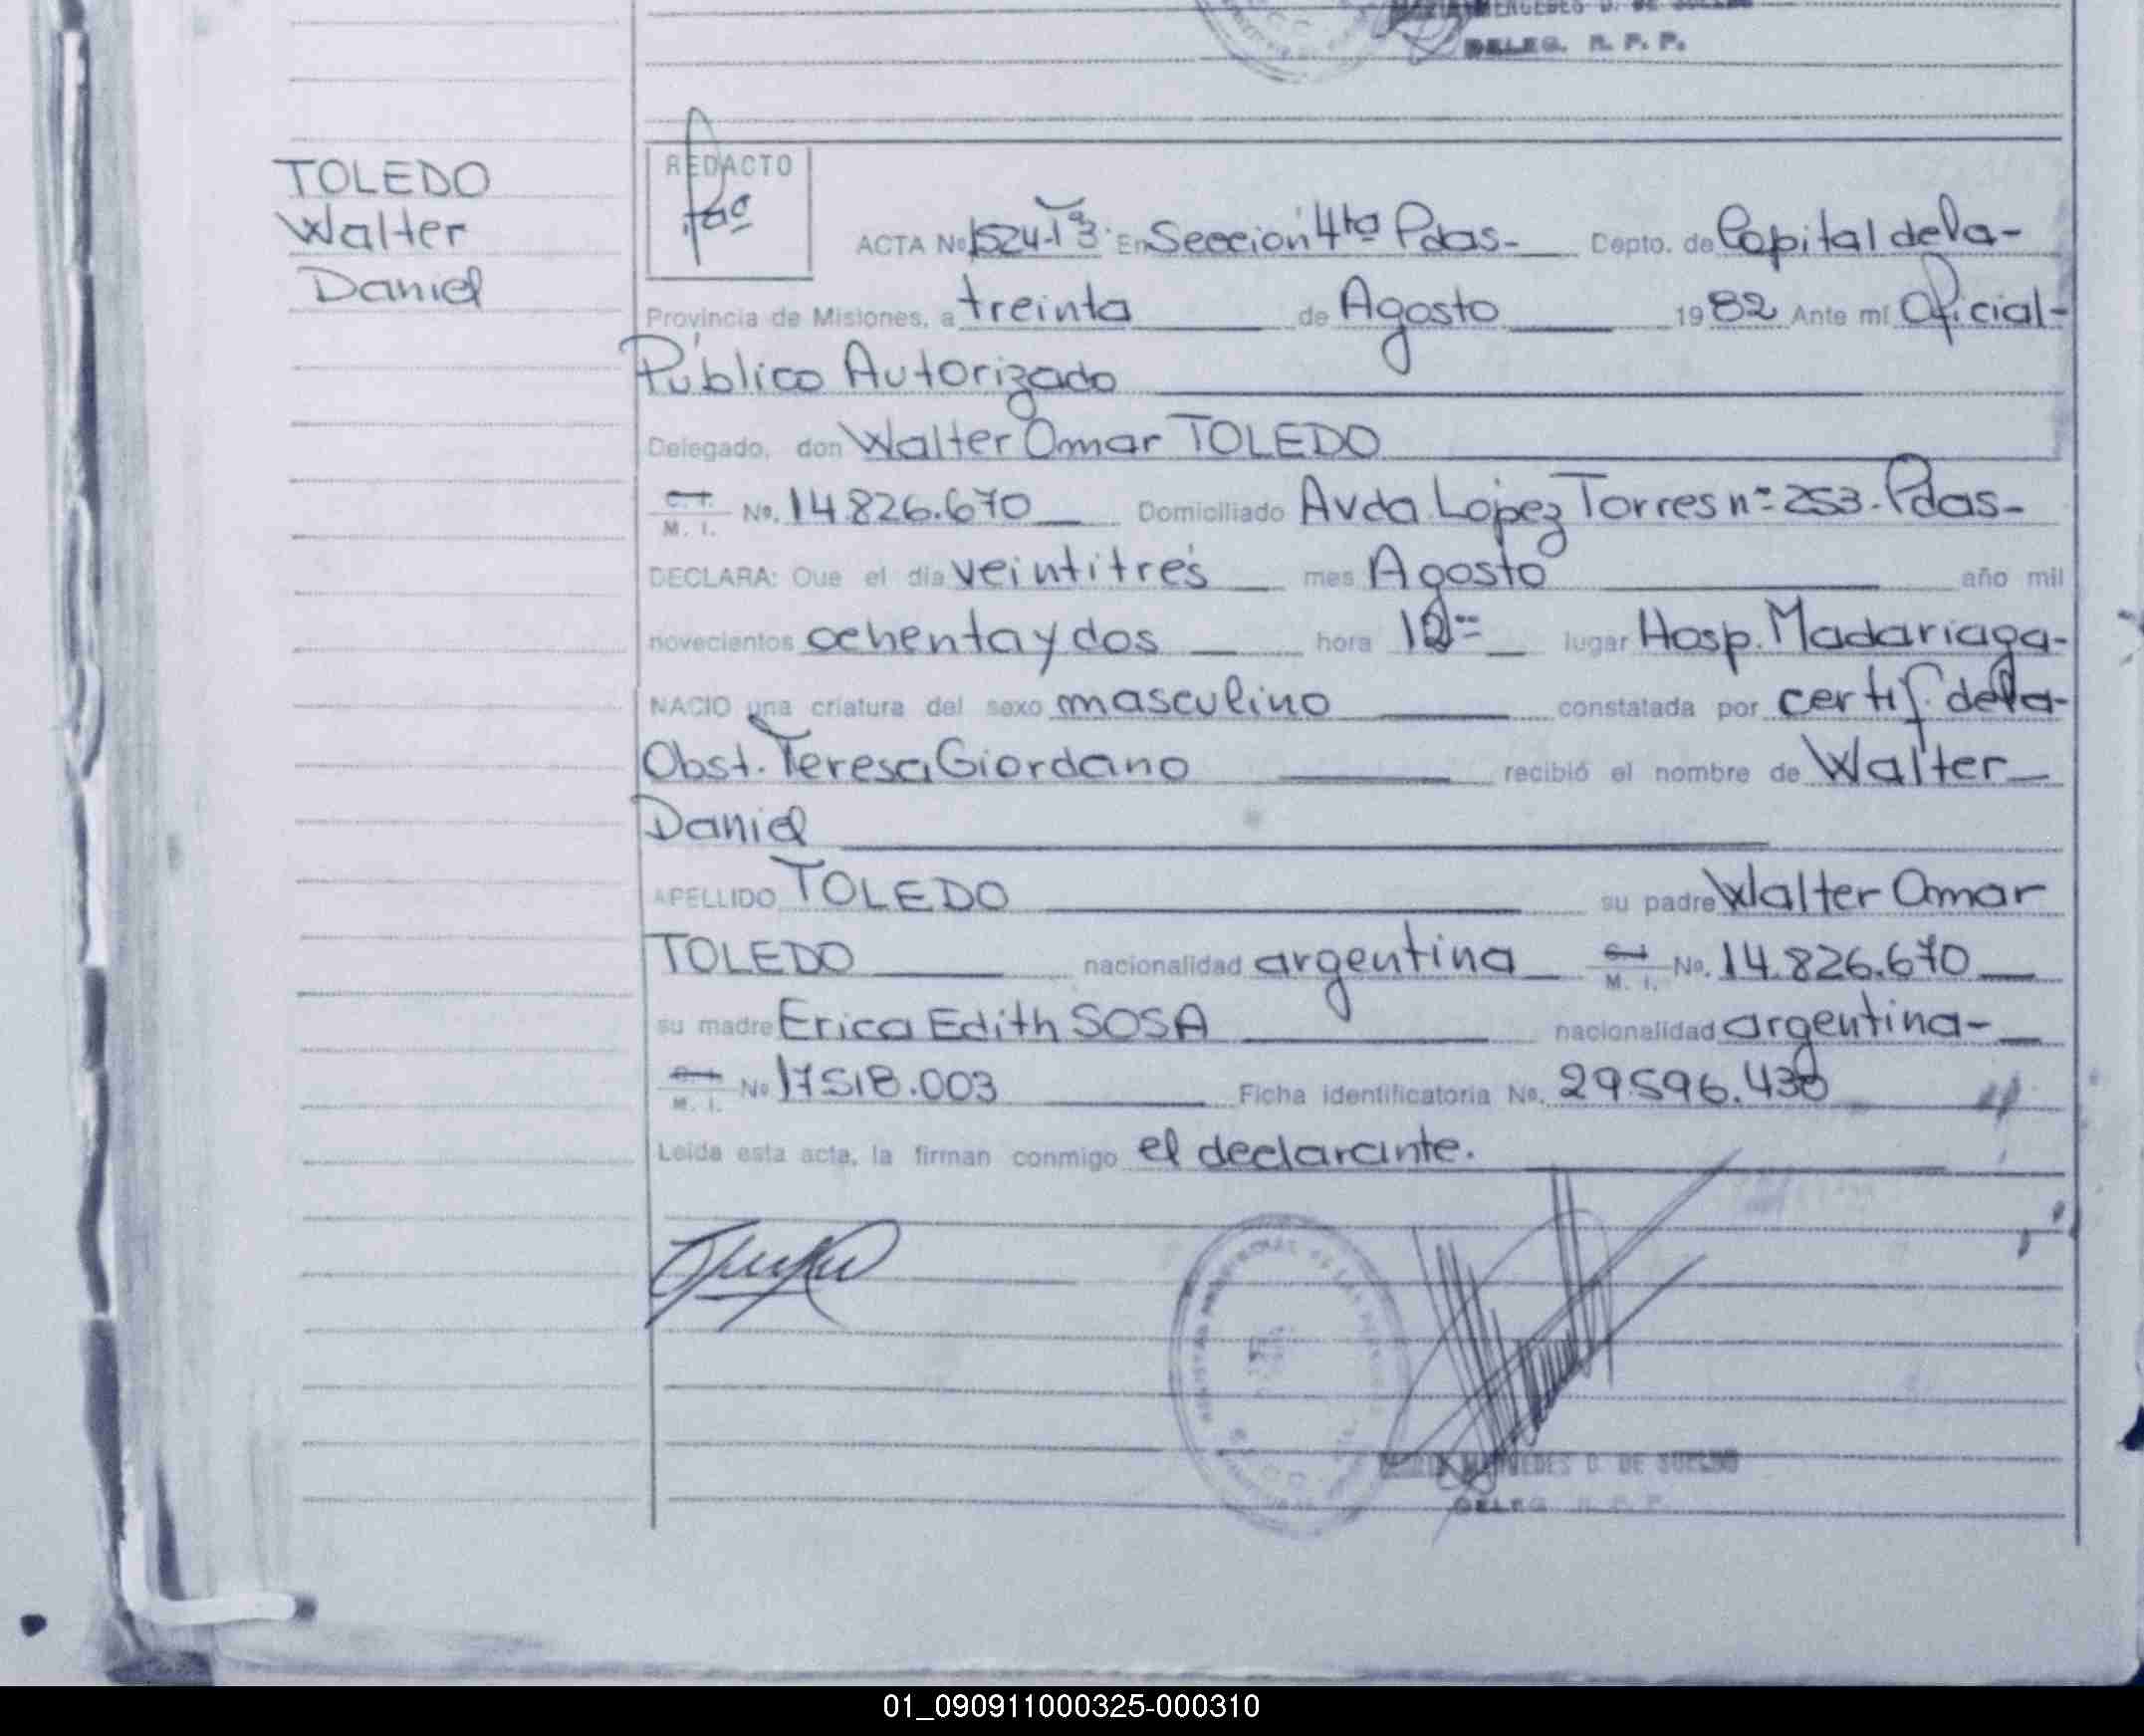 MARIA MERCEDES D. DE SUELDO
DELEG. R. P. P.
TOLEDO
Walter
Daniel
REDACTO
ACTA No 1524-Tº3 En Sección 4ta Pdas- Depto. de Capital de la-
Provincia de Misiones, a treinta de Agosto 1982 Ante mí Oficial-
Público Autorizado
Delegado, don Walter Omar TOLEDO
C. I. M. I. No. 14.826.670 Domiciliado Avda. López Torres nº 253. Pdas-
DECLARA: Que el día veintitrés mes Agosto año mil
novecientos ochenta y dos hora lugar Hosp. Madariaga-
NACIO una criatura del sexo masculino constatada por certif. de la-
Obst. Teresa Giordano recibió el nombre de Walter
Daniel
APELLIDO TOLEDO su padre Walter Omar
TOLEDO nacionalidad argentina C. I. M. I. No. 14.826.670
su madre Erica Edith SOSA nacionalidad argentina-
C. I. M. I. No 17518.003 Ficha identificatoria No. 29.596.438
Leída esta acta, la firman conmigo el declarante.
MARIA MERCEDES D. DE SUELDO
DELEG. R. P. P.
01_090911000325-000310